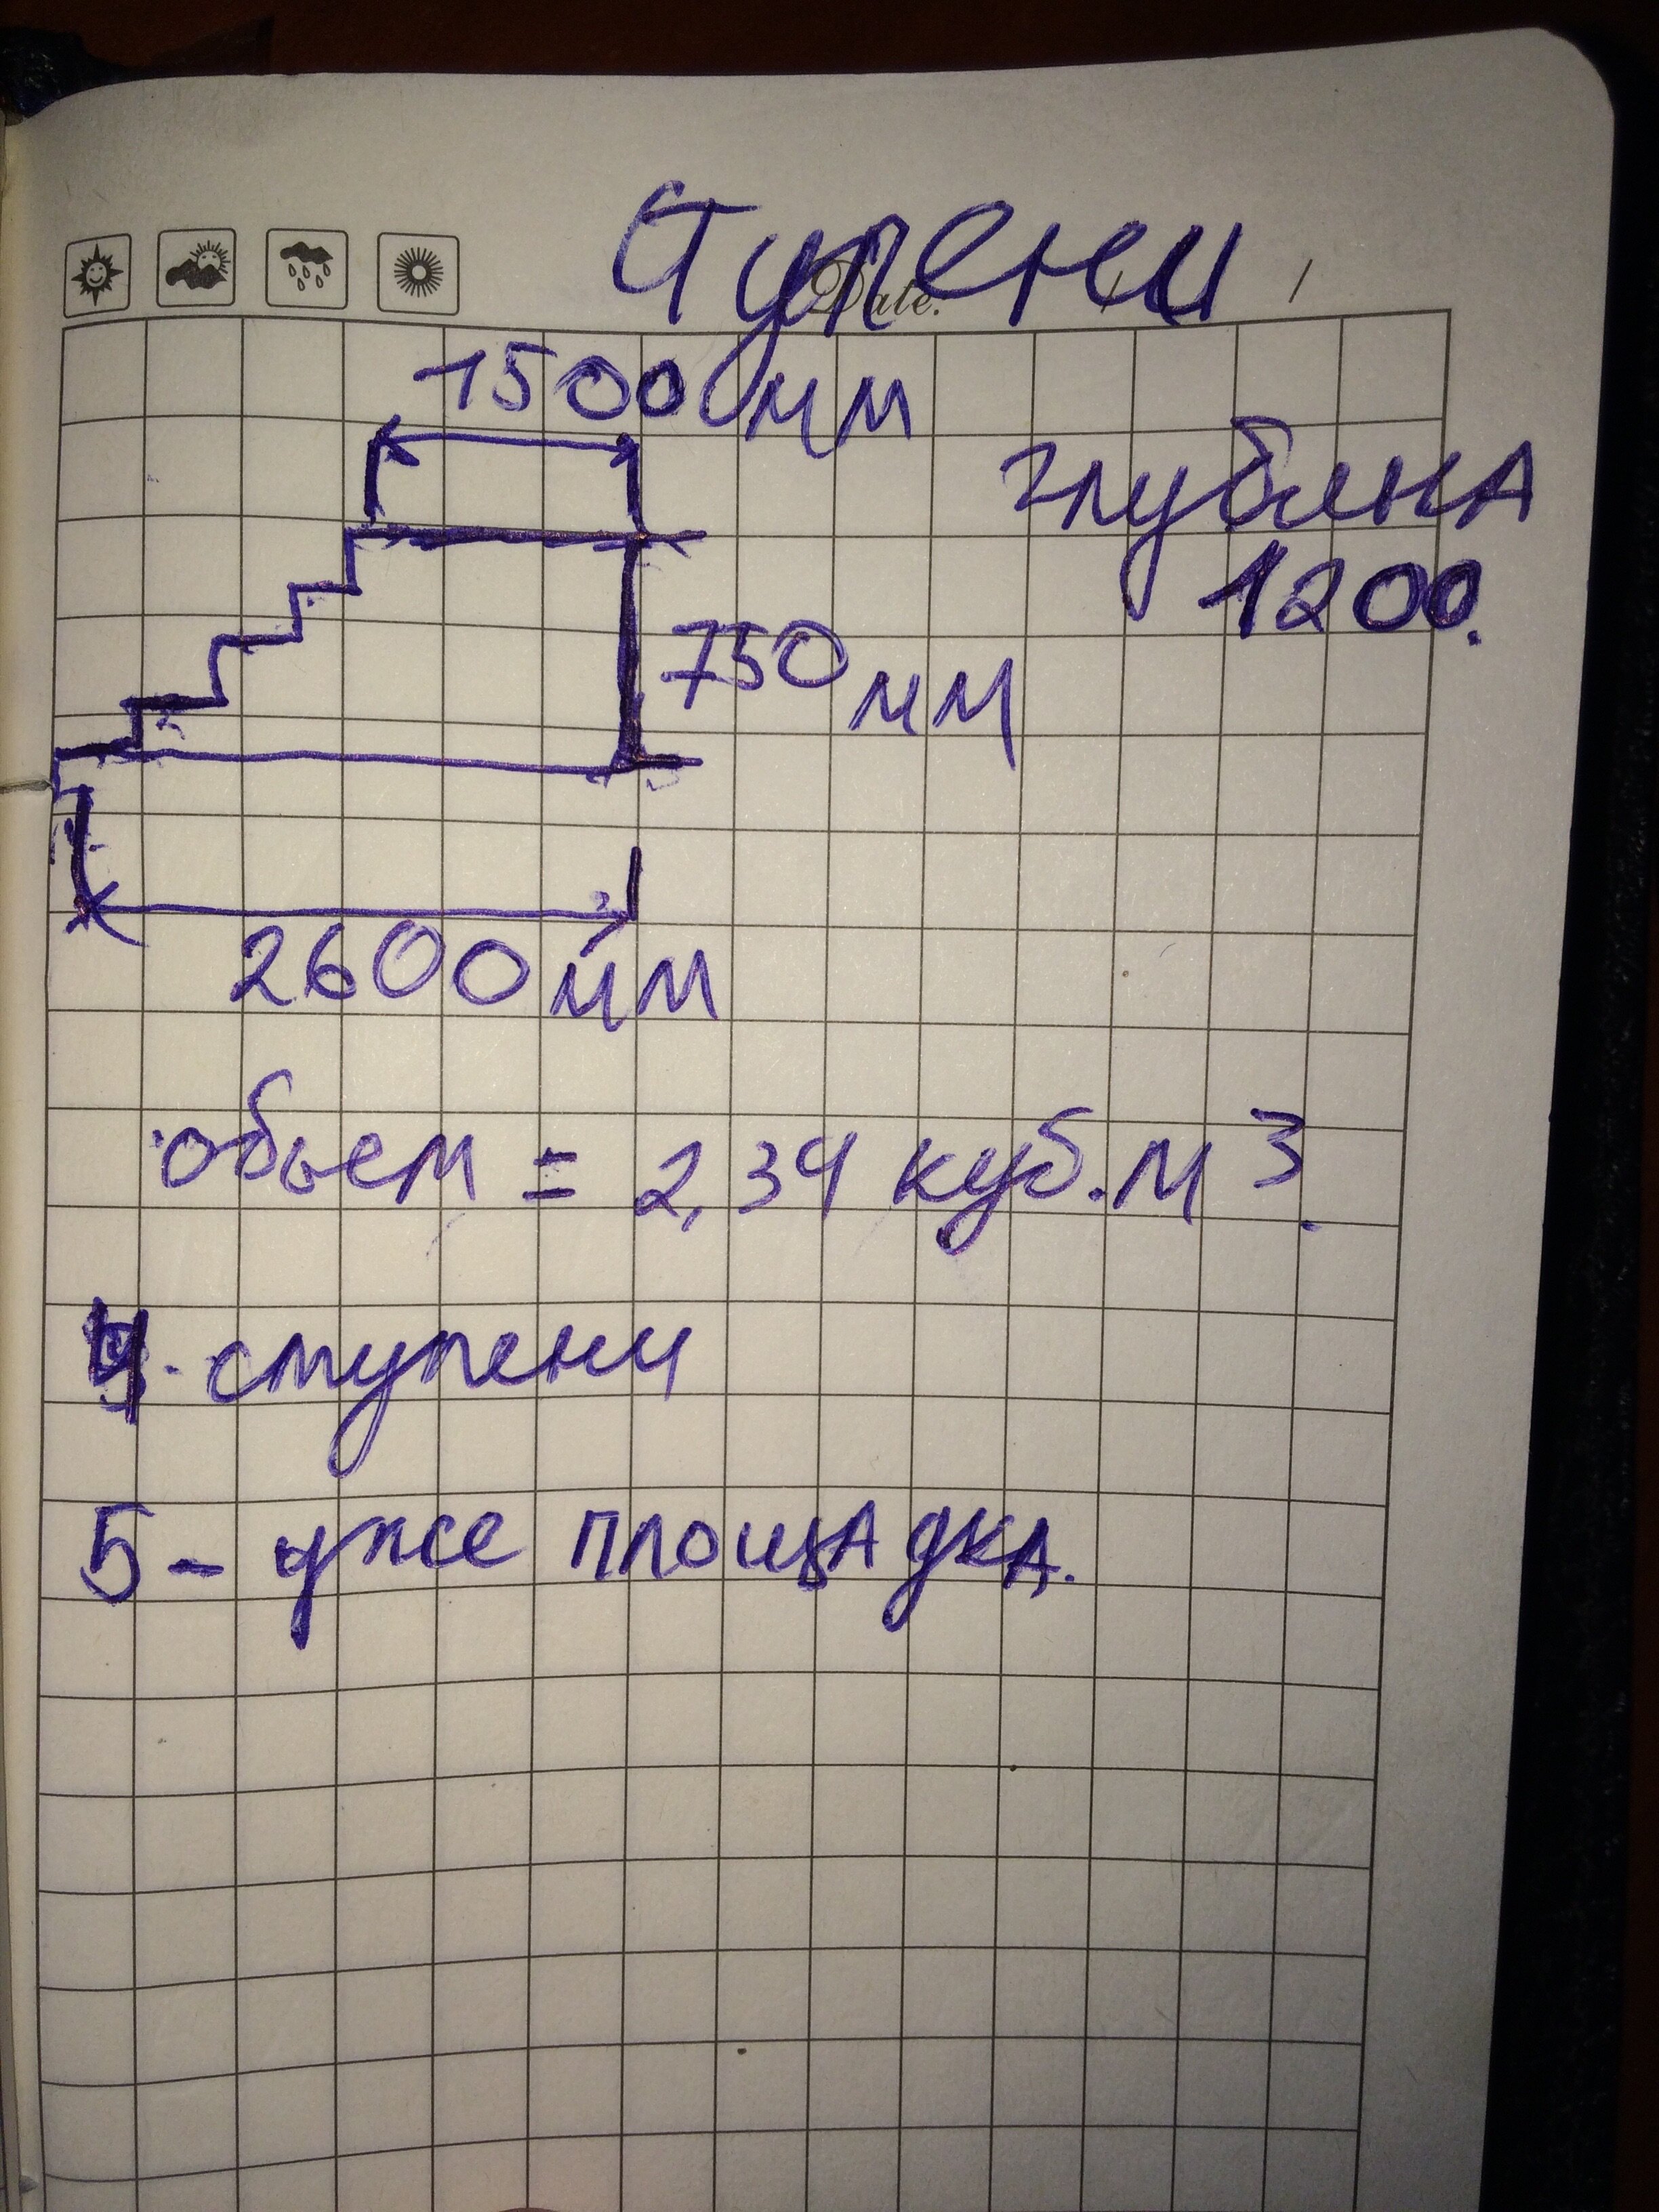 Ступени
Date.
1500 мм
глубина
1200.
750 мм
2600 мм
обьем = 2,34 куб.м3.
4-ступени
5 - уже площадка.